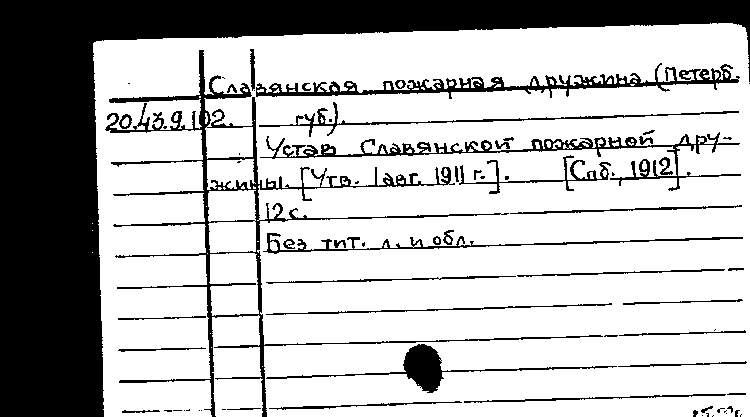 Славянская пожарная дружина. (Петерб.
20.43.9.102. губ.).
Устав Славянской пожарной дру-
жины. [Утв. 1 авг. 1911 г.]. [Спб., 1912].
12 с.
Без тит. л. и обл.